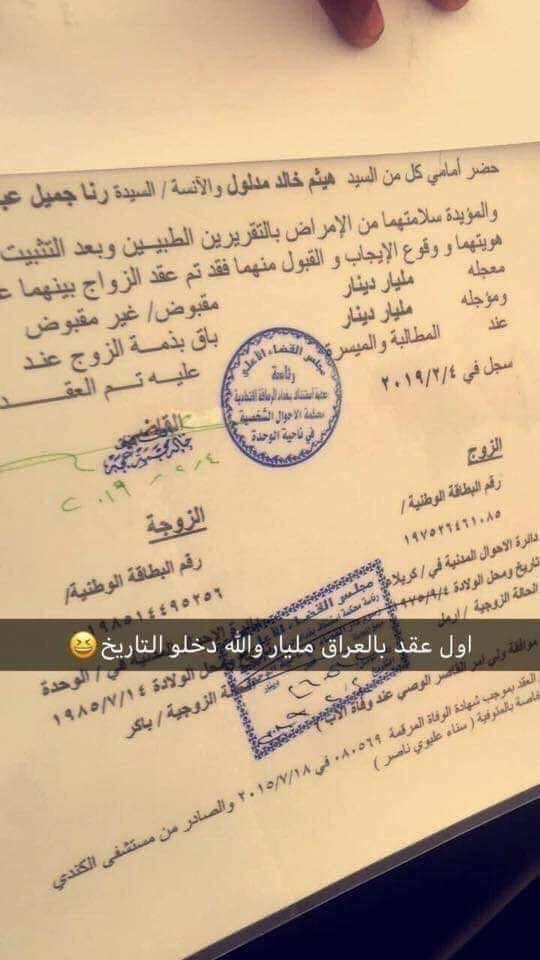 حضر أمامي كل من السيد هيثم خالد مدلول والآنسة / السيدة رنا جميل عب
والمؤيدة سلامتهما من الإمراض بالتقريرين الطبيين وبعد التثبيت
هويتهما و وقوع الإيجاب و القبول منهما فقد تم عقد الزواج بينهما
معجله مليار دينار مقبوض/ غير مقبوض
ومؤجله مليار دينار باق بذمة الزوج عند
عند المطالبة والميسرة عليه تم العقد
سجل في ٢٠١٩/٢/٤
مجلس القضاء الأعلى
رئاسة
محكمة استئناف بغداد الرصافة الاتحادية
محكمة الاحوال الشخصية
في ناحية الوحدة
القاضي
٢٠١٩/٢/٤
الزوج
رقم البطاقة الوطنية/
١٩٧٥٢٦٤٦١٠٨٥
دائرة الاحوال المدنية في / كربلاء
تاريخ ومحل الولادة
الحالة الزوجية / ارمل
الزوجة
رقم البطاقة الوطنية/
١٩٨٥١٤٤٩٥٢٥٦
الوحدة
الولادة ١٩٨٥/٧/١٤
الزوجية / باكر
مجلس القضاء
اول عقد بالعراق مليار والله دخلو التاريخ😆
موافقة ولي امر القاصر الوصي عند وفاة الاب )
العقد بموجب شهادة الوفاة المرقمة ٠٨٠٥٦٩ في ٢٠١٥/٧/١٨ والصادر من مستشفى الكندي
خاصة بالمتوفية ( سناء عليوي ناصر )